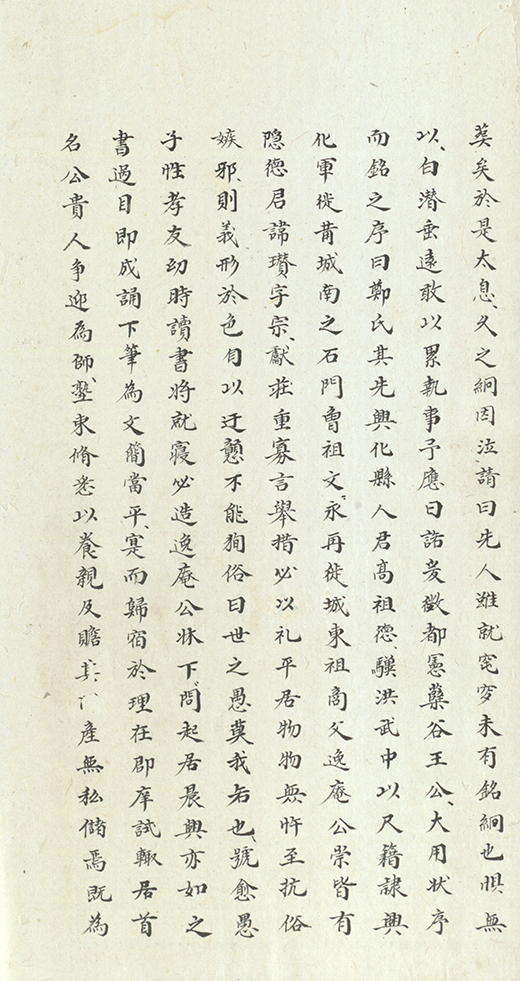 葬矣於是太息久之絅因泣請曰先人雖就窀穸未有銘絅也惧無
以白潜垂遠敢以累執事予應曰諾爰徵都憲蘗谷王公大用状序
而銘之序曰鄭氏其先興化縣人君高祖德驥洪武中以尺籍隷興
化軍徙莆城南之石門曾祖文永再徙城東祖商父逸庵公崇皆有
隠德君諱瓚字宗献莊重寡言舉措必以礼平居物物無忤至抗俗
嫉邪則義形於色自以迂戇不能狥俗曰世之愚莫我若也號愈愚
子性孝友幼時讀書将就寝必造逸庵公牀下問起居晨興亦如之
書過目即成誦下筆為文簡當平寔而歸宿於理在郡庠試輒居首
名公貴人争迎為師塾束脩悉以養親及贍其產無私儲焉既為